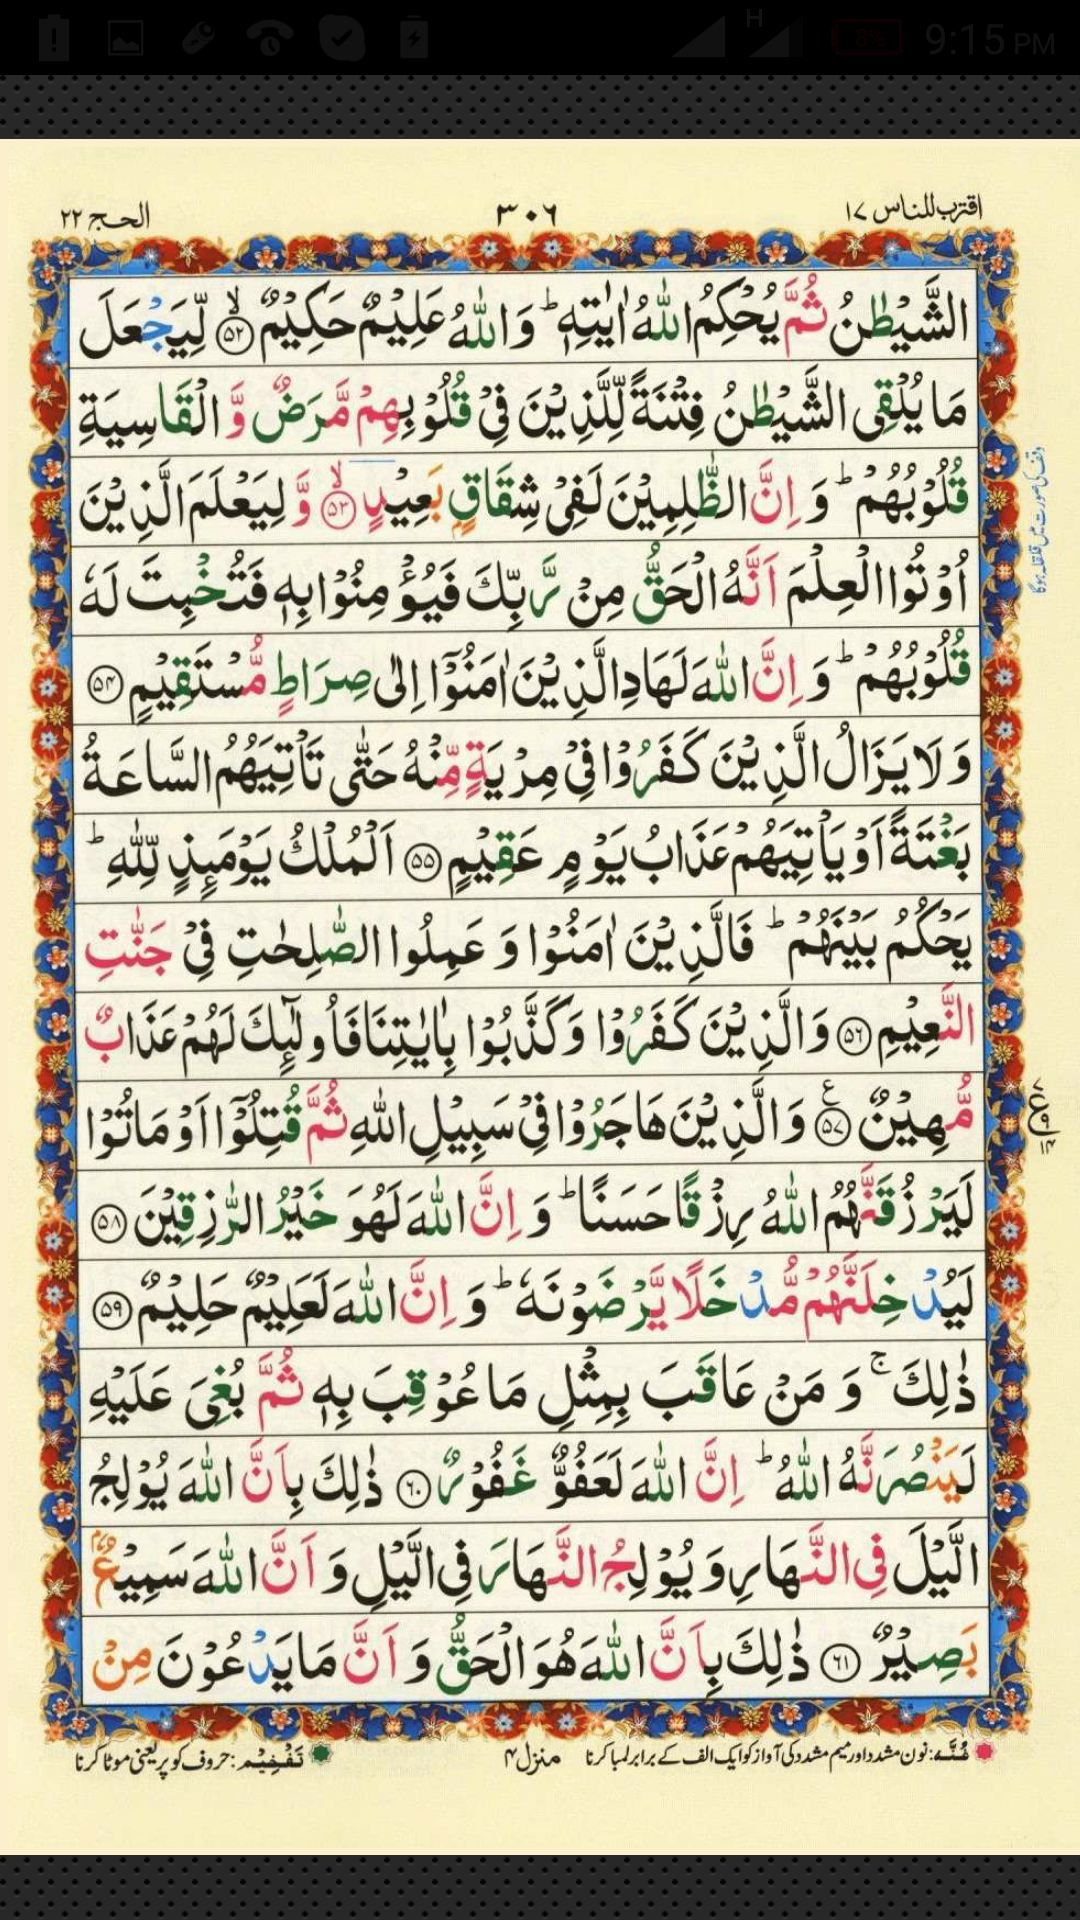 H
8%
9:15 PM
اقترب للناس ١٧
٣٠٦
الحج ٢٢
الشَّيْطٰنُ ثُمَّ يُحْكِمُ اللّٰهُ اٰيٰتِهٖ ؕ وَاللّٰهُ عَلِيْمٌ حَكِيْمٌ ۙ‏﴿۵۲﴾ لِّيَجْعَلَ
مَا يُلْقِى الشَّيْطٰنُ فِتْنَةً لِّلَّذِيْنَ فِىْ قُلُوْبِهِمْ مَّرَضٌ وَّ الْقَاسِيَةِ
قُلُوْبُهُمْ ؕ وَ اِنَّ الظّٰلِمِيْنَ لَفِىْ شِقَاقٍۭ بَعِيْدٍ ۙ‏﴿۵۳﴾ وَّ لِيَعْلَمَ الَّذِيْنَ
اُوْتُوا الْعِلْمَ اَنَّهُ الْحَقُّ مِنْ رَّبِّكَ فَيُؤْمِنُوْا بِهٖ فَتُخْبِتَ لَهٗ
قُلُوْبُهُمْ ؕ وَ اِنَّ اللّٰهَ لَهَادِ الَّذِيْنَ اٰمَنُوْۤا اِلٰى صِرَاطٍ مُّسْتَقِيْمٍ ﴿۵۴﴾
وَ لَا يَزَالُ الَّذِيْنَ كَفَرُوْا فِىْ مِرْيَةٍ مِّنْهُ حَتّٰى تَاْتِيَهُمُ السَّاعَةُ
بَغْتَةً اَوْ يَاْتِيَهُمْ عَذَابُ يَوْمٍ عَقِيْمٍ ﴿۵۵﴾ اَلْمُلْكُ يَوْمَئِذٍ لِّلّٰهِ ؕ
يَحْكُمُ بَيْنَهُمْ ؕ فَالَّذِيْنَ اٰمَنُوْا وَ عَمِلُوا الصّٰلِحٰتِ فِىْ جَنّٰتِ
النَّعِيْمِ ﴿۵۶﴾ وَ الَّذِيْنَ كَفَرُوْا وَ كَذَّبُوْا بِاٰيٰتِنَا فَاُولٰٓئِكَ لَهُمْ عَذَابٌ
مُّهِيْنٌ ﴿۵۷﴾ ع وَ الَّذِيْنَ هَاجَرُوْا فِىْ سَبِيْلِ اللّٰهِ ثُمَّ قُتِلُوْۤا اَوْ مَاتُوْا
لَيَرْزُقَنَّهُمُ اللّٰهُ رِزْقًا حَسَنًا ؕ وَ اِنَّ اللّٰهَ لَهُوَ خَيْرُ الرّٰزِقِيْنَ ﴿۵۸﴾
لَيُدْخِلَنَّهُمْ مُّدْخَلًا يَّرْضَوْنَهٗ ؕ وَ اِنَّ اللّٰهَ لَعَلِيْمٌ حَلِيْمٌ ﴿۵۹﴾
ذٰلِكَ ۚ وَ مَنْ عَاقَبَ بِمِثْلِ مَا عُوْقِبَ بِهٖ ثُمَّ بُغِىَ عَلَيْهِ
لَيَنْصُرَنَّهُ اللّٰهُ ؕ اِنَّ اللّٰهَ لَعَفُوٌّ غَفُوْرٌ ﴿۶۰﴾ ذٰلِكَ بِاَنَّ اللّٰهَ يُوْلِجُ
الَّيْلَ فِى النَّهَارِ وَ يُوْلِجُ النَّهَارَ فِى الَّيْلِ وَ اَنَّ اللّٰهَ سَمِيْعٌۢ
بَصِيْرٌ ﴿۶۱﴾ ذٰلِكَ بِاَنَّ اللّٰهَ هُوَ الْحَقُّ وَ اَنَّ مَا يَدْعُوْنَ مِنْ
وقف کی صورت میں قلقلہ ہوگا
غُنَّہ: نون مشدد اور میم مشدد کی آواز کو ایک الف کے برابر لمبا کرنا
منزل ۴
تَفْخِیْم: حروف کو پُر یعنی موٹا کرنا